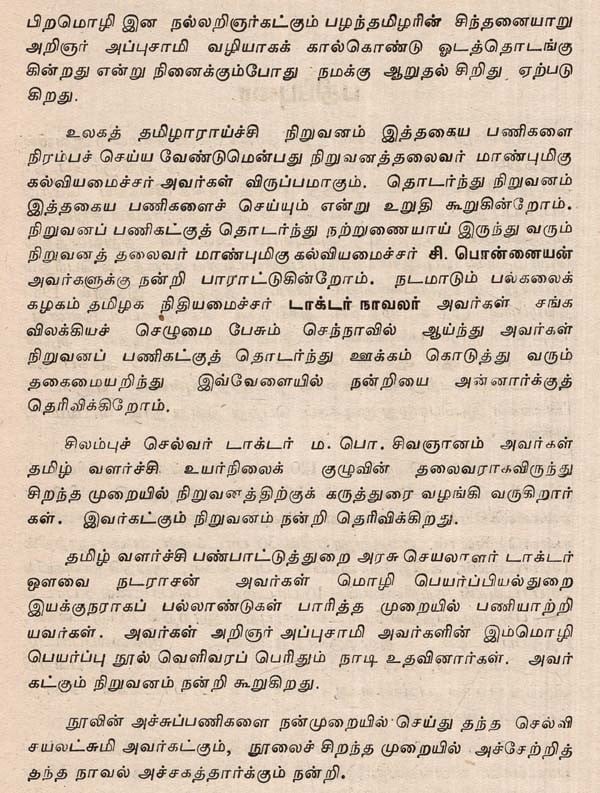 பிறமொழி இன நல்லறிஞர்கட்கும் பழந்தமிழரின் சிந்தனையாறு
அறிஞர் அப்புசாமி வழியாகக் கால்கொண்டு ஓடத்தொடங்கு
கின்றது என்று நினைக்கும்போது நமக்கு ஆறுதல் சிறிது ஏற்படு
கிறது.
உலகத் தமிழாராய்ச்சி நிறுவனம் இத்தகைய பணிகளை
நிரம்பச் செய்ய வேண்டுமென்பது நிறுவனத்தலைவர் மாண்புமிகு
கல்வியமைச்சர் அவர்கள் விருப்பமாகும். தொடர்ந்து நிறுவனம்
இத்தகைய பணிகளைச் செய்யும் என்று உறுதி கூறுகின்றோம்.
நிறுவனப் பணிகட்குத் தொடர்ந்து நற்றுணையாய் இருந்து வரும்
நிறுவனத் தலைவர் மாண்புமிகு கல்வியமைச்சர் சி. பொன்னையன்
அவர்களுக்கு நன்றி பாராட்டுகின்றோம். நடமாடும் பல்கலைக்
கழகம் தமிழக நிதியமைச்சர் டாக்டர் நாவலர் அவர்கள் சங்க
விலக்கியச் செழுமை பேசும் செந்நாவில் ஆய்ந்து அவர்கள்
நிறுவனப் பணிகட்குத் தொடர்ந்து ஊக்கம் கொடுத்து வரும்
தகைமையறிந்து இவ்வேளையில் நன்றியை அன்னார்க்குத்
தெரிவிக்கிறோம்.
சிலம்புச் செல்வர் டாக்டர் ம. பொ. சிவஞானம் அவர்கள்
தமிழ் வளர்ச்சி உயர்நிலைக் குழுவின் தலைவராகவிருந்து
சிறந்த முறையில் நிறுவனத்திற்குக் கருத்துரை வழங்கி வருகிறார்
கள். இவர்கட்கும் நிறுவனம் நன்றி தெரிவிக்கிறது.
தமிழ் வளர்ச்சி பண்பாட்டுத்துறை அரசு செயலாளர் டாக்டர்
ஔவை நடராசன் அவர்கள் மொழி பெயர்ப்பியல்துறை
இயக்குநராகப் பல்லாண்டுகள் பாரித்த முறையில் பணியாற்றி
யவர்கள். அவர்கள் அறிஞர் அப்புசாமி அவர்களின் இம்மொழி
பெயர்ப்பு நூல் வெளிவரப் பெரிதும் நாடி உதவினார்கள். அவர்
கட்கும் நிறுவனம் நன்றி கூறுகிறது.
நூலின் அச்சுப்பணிகளை நன்முறையில் செய்து தந்த செல்வி
சயலட்சுமி அவர்கட்கும், நூலைச் சிறந்த முறையில் அச்சேற்றித்
தந்த நாவல் அச்சகத்தார்க்கும் நன்றி.